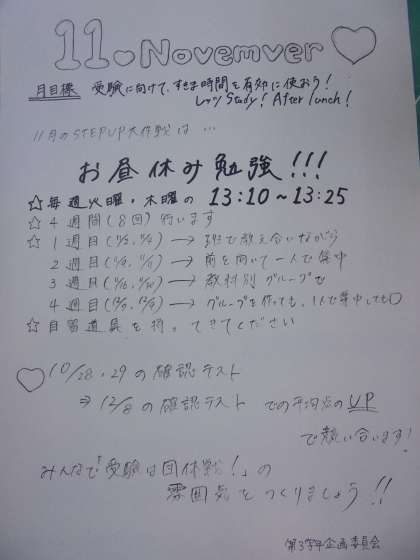 11 ♡ Novemver ♡
月目標 受験に向けて、すきま時間を有効に使おう!
レッツ Study! After lunch!
11月のSTEPUP大作戦は …
お昼休み勉強!!!
☆毎週火曜・木曜の 13:10~13:25
☆4週間(8回)行います
☆1週目 → で教え合いながら
2週目 → 前を向いて一人で集中
3週目 → 教科別グループで
4週目 → グループを作っても、1人で集中しても○
☆自習道具を持ってきてください
♡ 10/28・29の確認テスト
⇒ 12/8の確認テスト での平均点のUP
で競い合います!
みんなで「受験は団体戦!」の
雰囲気をつくりましょう!!
第3学年企画委員会